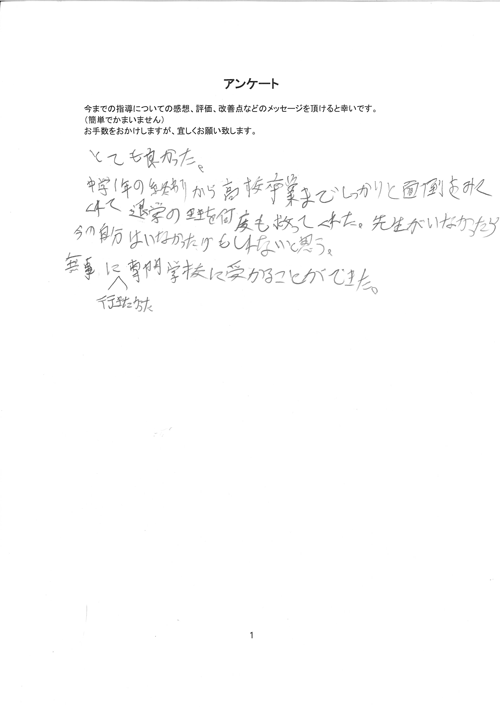 アンケート
今までの指導についての感想、評価、改善点などのメッセージを頂けると幸いです。
（簡単でかまいません）
お手数をおかけしますが、宜しくお願い致します。
とても良かった。
中学1年の終わりから高校卒業までしっかりと面倒をみて
くれて退学の を何度も救ってくれた。先生がいなかったら
今の自分はいなかったかもしれないと思う。
無事に専門学校に受かることができた。
行きたかった
1